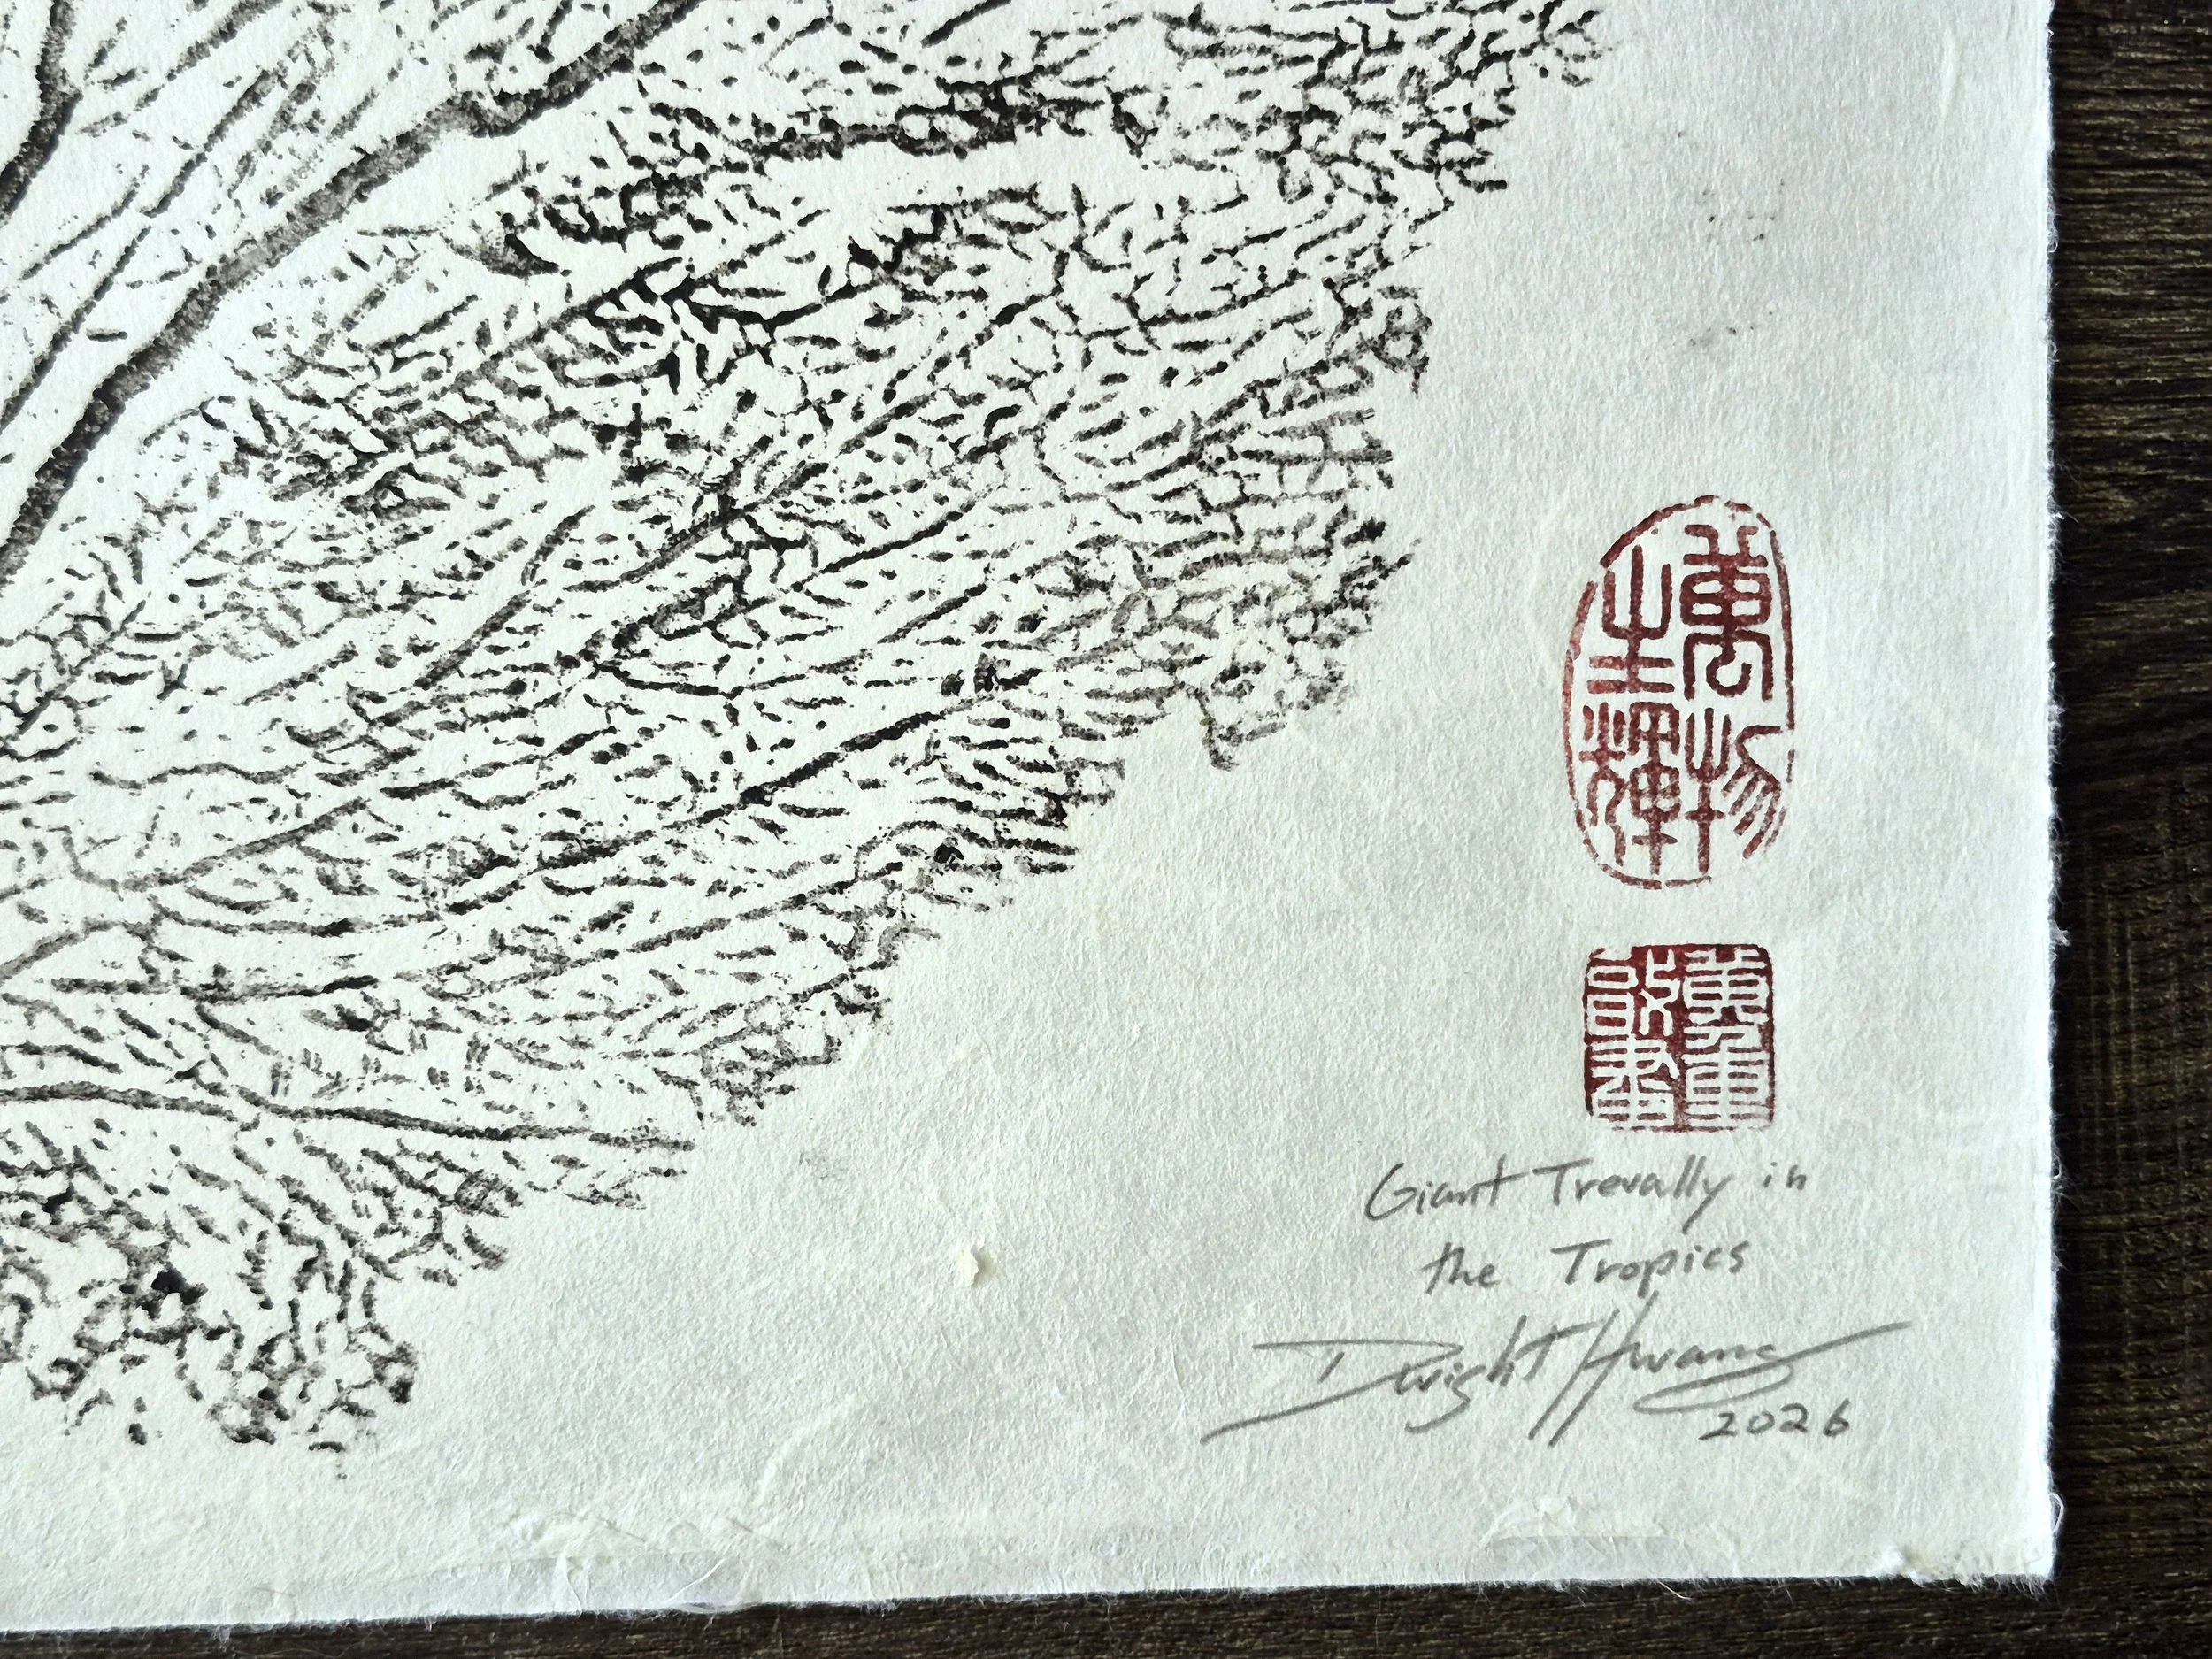 萬物
生輝
Giant Trevally in
the Tropics
Dwight Hwang
2026